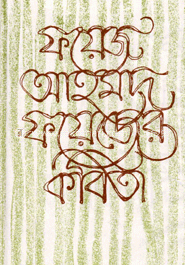 ফয়েজ
আহমদ
ফয়েজের
কবিতা